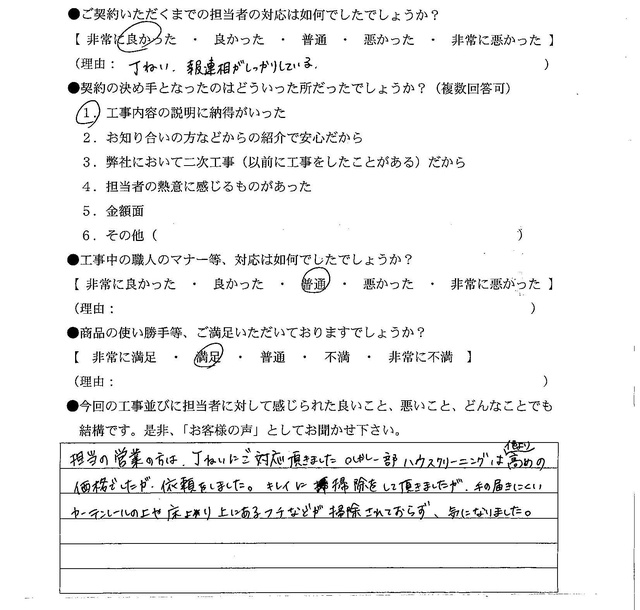 ●ご契約いただくまでの担当者の対応は如何でしたでしょうか?
【 非常に良かった ・ 良かった ・ 普通 ・ 悪かった ・ 非常に悪かった 】
(理由: 丁ねい、報連相がしっかりしている。 )
●契約の決め手となったのはどういった所だったでしょうか?(複数回答可)
1.工事内容の説明に納得がいった
2.お知り合いの方などからの紹介で安心だから
3.弊社において二次工事(以前に工事をしたことがある)だから
4.担当者の熱意に感じるものがあった
5.金額面
6.その他( )
●工事中の職人のマナー等、対応は如何でしたでしょうか?
【 非常に良かった ・ 良かった ・ 普通 ・ 悪かった ・ 非常に悪かった 】
(理由: )
●商品の使い勝手等、ご満足いただいておりますでしょうか?
【 非常に満足 ・ 満足 ・ 普通 ・ 不満 ・ 非常に不満 】
(理由: )
●今回の工事並びに担当者に対して感じられた良いこと、悪いこと、どんなことでも
結構です。是非、「お客様の声」としてお聞かせ下さい。
担当の営業の方は、丁ねいにご対応頂きました しかし一部 ハウスクリーニングは他より高めの
価格でしたが、依頼をしました。キレイに掃除をして頂きましたが、手の届きにくい
カーテンレールの上や床より上にあるフチなどが掃除されておらず、気になりました。